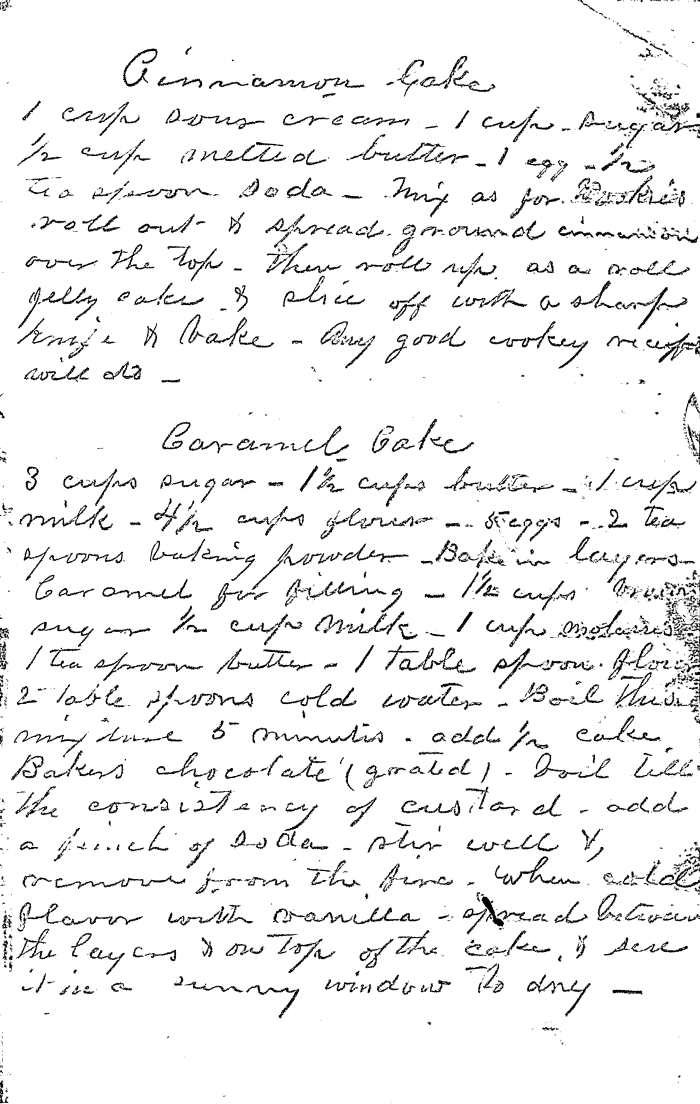 Cinnamon Cake
1 cup sour cream - 1 cup - sugar
1/2 cup melted butter - 1 egg - 1/2
tea spoon soda - Mix as for Cookies
roll out & spread ground cinnamon
over the top - then roll up as a roll
jelly cake & slice off with a sharp
knife & bake - Any good cookey
will do -
Caramel Cake
3 cups sugar - 1 1/2 cups butter - 1 cup
milk - 4 1/2 cups flour - 5 eggs - 2 tea
spoons baking powder - Bake in layers -
Caramel for filling - 1 1/2 cups brown
sugar 1/2 cup milk - 1 cup molasses
1 tea spoon butter - 1 table spoon flour
2 table spoons cold water - Boil this
mixture 5 minutes - add 1/2 cake
Bakers chocolate (grated) - boil till
the consistency of custard - add
a pinch of soda - stir well &
remove from the fire - When cold
flavor with vanilla - spread between
the layers & on top of the cake &
it in a sunny window to dry -